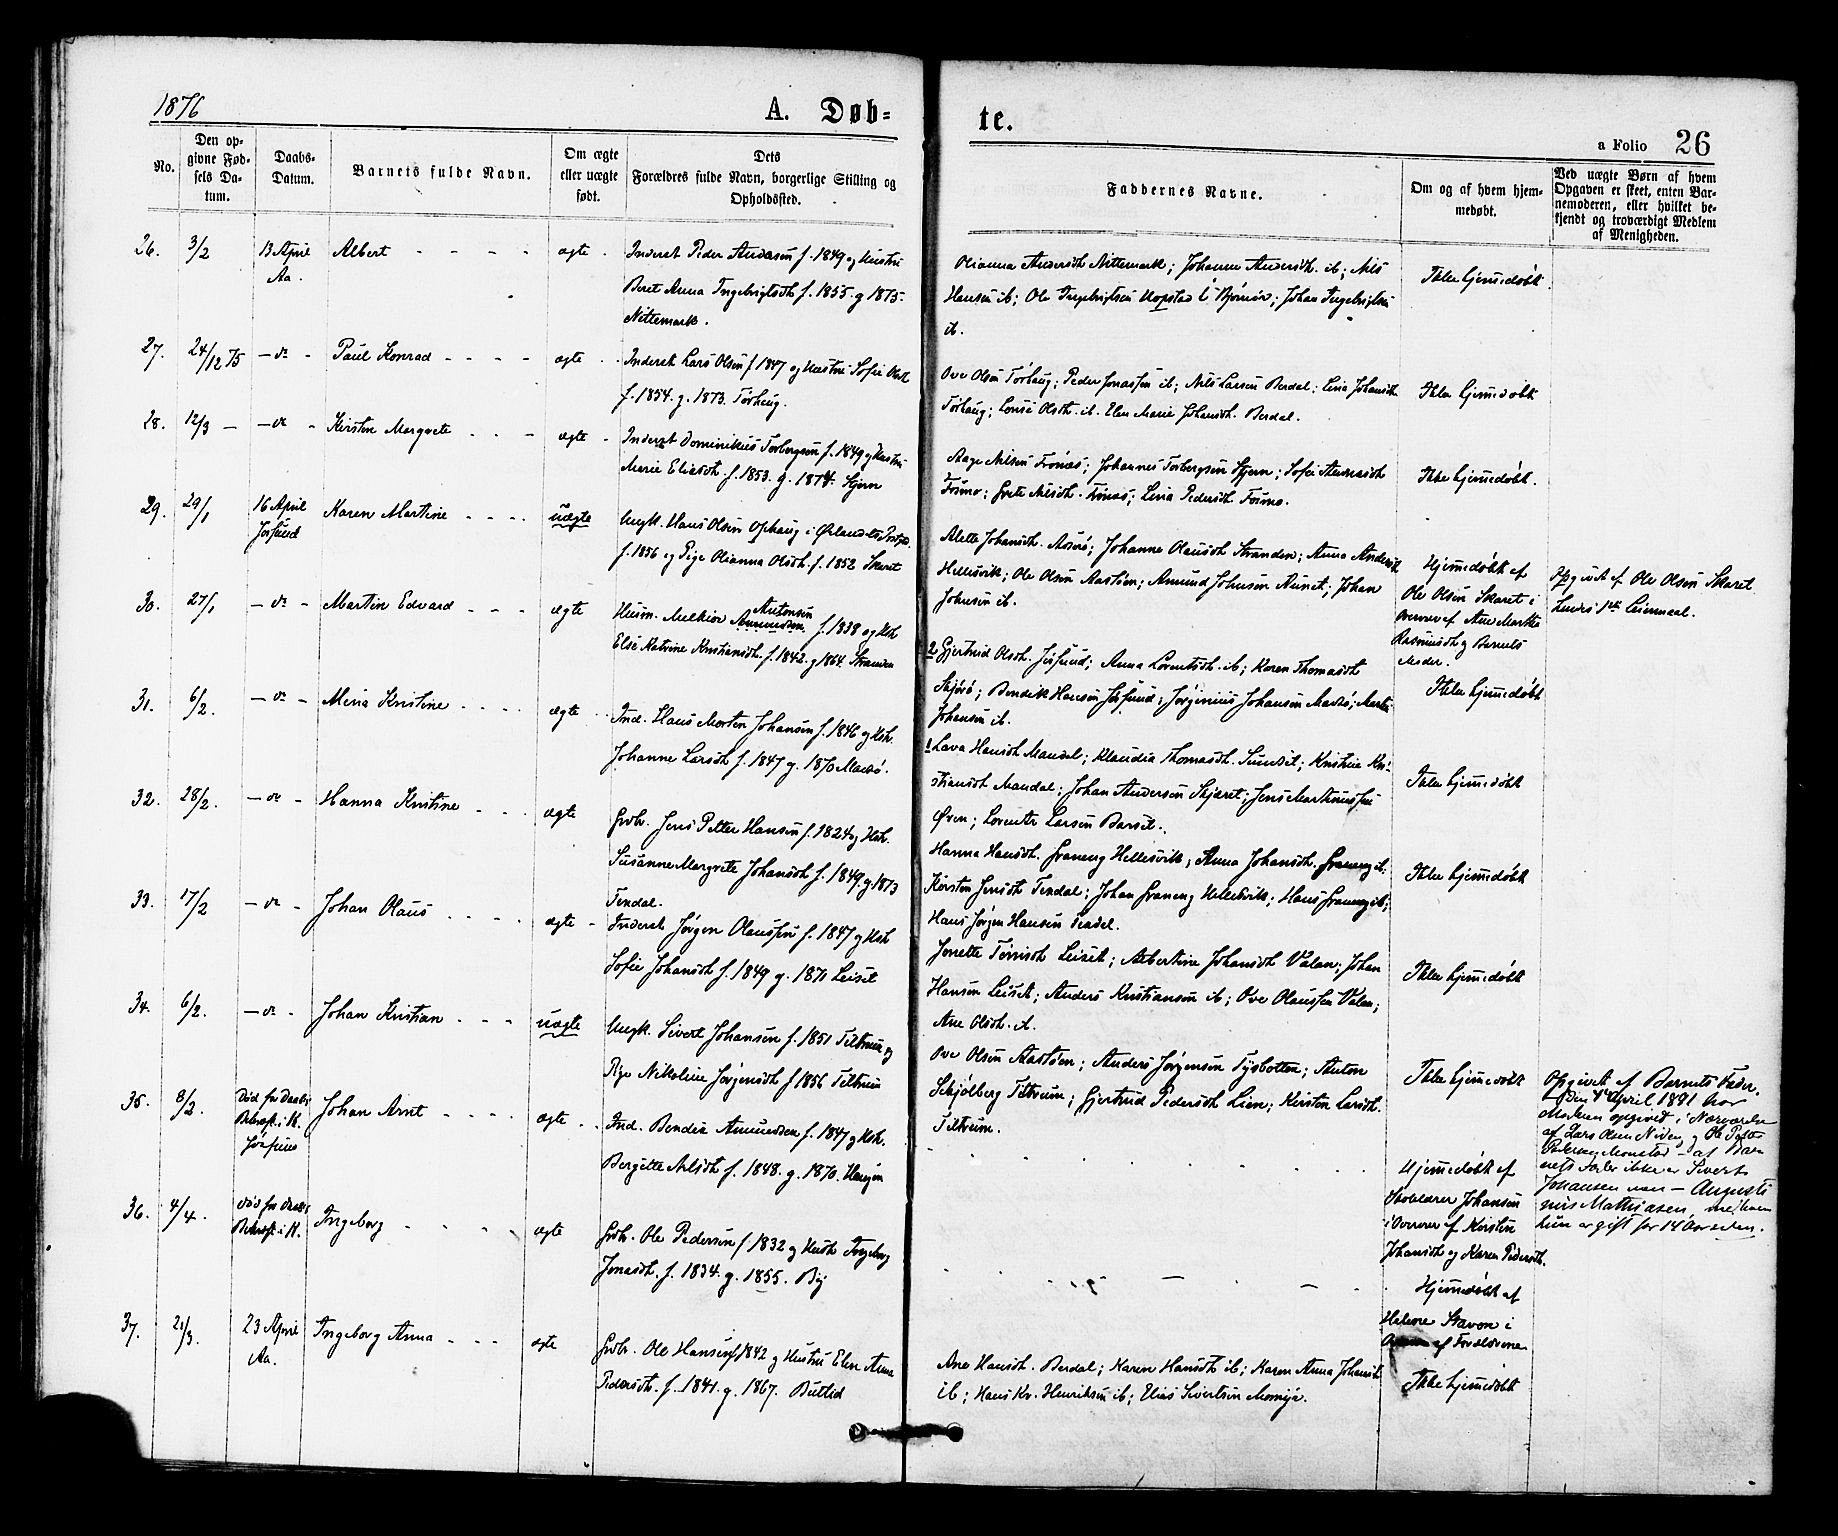 1876
A. Døb=
te.
a Folio 26
No.
Den op-
givne Fød-
sels Da-
tum.
Daabs-
Datum.
Barnets fulde Navn.
Om ægte
eller uægte
født.
Dets
Forældres fulde Navn, borgerlige Stilling og
Opholdssted.
Faddernes Navne.
Om og af hvem hjem-
medøbt.
Ved uægte Børn af hvem
Opgaven er skeet, enten Bar-
nemoderen, eller hvilket be-
kjendt og troværdigt Medlem
af Menigheden.
26. 3/2 13 April Albert - - - - ægte - Inderst Peder Andersen f. 1849 og Hustru
Aa.
Beret Anna Ingebrigtsdt f. 1855. g 1875.
Nittemark.
Olianna Andersdt Nittemark; Johanna Andersdt. ib; Nils
Hansen ib; Ole Ingebrigtsen Hopstad i Bjørnør; Johan Ingebrigtsen
ib.
Ikke hjemmedøbt.
27. 24/12 75 - do - Paul Konrad - - - - ægte - Inderst Lars Olsen f 1847 og Hustru Sofie Olsdt
f. 1854. g. 1873. Tørhaug.
Ove Olsen Tørhaug; Peder Jonassen ib; Nils Larsen Berdal; Lina Johansdt
Tørhaug; Lovise Olsdt. ib. Elen Marie Johansdt. Berdal.
Ikke hjemmedøbt
28. 12/3 - - do - Kirsten Margrete - - - ægte - Inderst Dominikus Torbergsen f. 1849 og Hustru
Marie Eliasdt. f. 1853. g. 1874. Stjern
Aage Nilsen Frønæs; Johannes Torbergsen Stjern; Sofie Andreasdt
Fosmo; Grete Nilsdt. Frønæs; Lina Pedersdt. Fosmo.
Ikke hjemmedøbt.
29. 29/1 16 April Karen Martine - - - - uægte Ungk. Hans Olsen Ophaug i Ørlandets
Jøssund
f. 1856 og Pige Olianna Olsdt. f. 1852 Skaret
Alette Johansdt. ; Johanne Olausdt Stranden; Anna Andersdt
Hellesvik; Ole Olsen Aastøen; Amund Johnsen Aunet; Johan
Johnsen ib.
Hjemmedøbt af
Ole Olsen Skaret i
Overvær af Ane Marthe
Rasmusdt og Barnets
Moder.
Opgivet af Ole Olsen Skaret.
Leiermaal.
30. 27/1 - do - Martin Edvard - - - ægte Husm. Melkior Antonsen
Amundsen f. 1838 og Hst
Else Katrine Kristiansdt. f. 1842. g 1864. Stranden
2 Gjertrud Olsdt. Jøssund; Anna Lorentsdt. ib; Karen Thomasdt
; Bendik Hansen Jøssund; Jørginius Johansen Madsø; Martin
Johansen ib.
Ikke hjemmedøbt
31. 6/2. - do - Mina Kristine - - - - ægte - Ind. Hans Morten Johansen f. 1846 og Hst.
Johanne Larsdt f. 1847 g. 1870 Madsø.
1 Lava Hansdt Mandal; Klaudia Thomasdt. Sundet; Kristine Kri-
stiansdt Mandal; Johan Andersen Skjæret; Jens Martinussen
Øren; Lorents Larsen Barset.
Ikke hjemmedøbt
32. 28/2. - do - Hanna Kristine - - - ægte Grbr. Jens Petter Hansen f. 1824 og Hst.
Susanne Margrete Johansdt f. 1849 g 1873
Tendal.
Hanna Hansdt. Graneng Hellesvik; Anna Johansdt. Graneng ib.
Kirsten Jensdt Tendal; Johan Graneng Hellesvik; Hans Graneng ib;
Hans Jørgen Hansen Tendal.
Ikke hjemmedøbt
33. 17/2 - do - Johan Olaus - - - - ægte - Inderst Jørgen Olaussen f. 1847 og Hst
Sofie Johansdt f. 1849 g. 1871 Leiset
Jonette Tønnesdt Leiset; Albertine Johansdt Valan; Johan
Hansen Leiset; Anders Kristiansen ib; Ove Olaussen Valan;
Ane Olsdt. ib.
Ikke hjemmedøbt
34. 6/2. - do - Johan Kristian - - - uægte Ungk. Sivert Johansen f. 1851 Teltrum og
Pige Nikoline Jørgensdt f 1856 Teltrum
Ove Olsen Aastøen; Anders Jørgensen Sysbotten; Anton
Skjølberg Teltrum; Gjertrud Pedersdt Lien; Kirsten Larsdt.
Teltrum.
Ikke hjemmedøbt
Opgivet af Barnets Fader.
Den 4 April 1891 har
Moderen opgivet i Nærværelse
af Lars Olsen og Ole Petter
- at Bar-
nets Fader ikke er Sivert
Johansen men - Augusti-
nus Mathiasen, med hvem
hun er gift for 14 Aar siden.
35. 8/2. Død før Daabs Johan Arnt - - - ægte - Ind. Bendix Amundsen f. 1847 og Hst.
Bekræft. i K.
Jøssund
Bergitte Nilsdt f. 1848. g. 1870. Haugen
Hjemmedøbt af
Skolelærer Johansen
i Overvær af Kirstine
Johansdt og Karen Pedersdt.
36. 4/4. Død før Daabs Ingeborg - - - - ægte Grbr. Ole Pedersen f 1832 og Hustr Ingeborg
Bekræft. i K.
Jonasdt. f. 1834. g. 1855. By
Hjemmedøbt af
Helene Stavon i
af Forældrene
37. 21/3. 23 April Ingeborg Anna - - - ægte Grbr. Ole Hansen f 1842 og Hustru Elen Anna
Aa.
Pedersdt. f. 1841. g. 1867. Butlid
Ane Hansdt. Berdal; Karen Hansdt ib; Karen Anna Johansdt
ib; Hans Kr. Henriksen ib; Elias Sivertsen Momyr.
Ikke hjemmedøbt